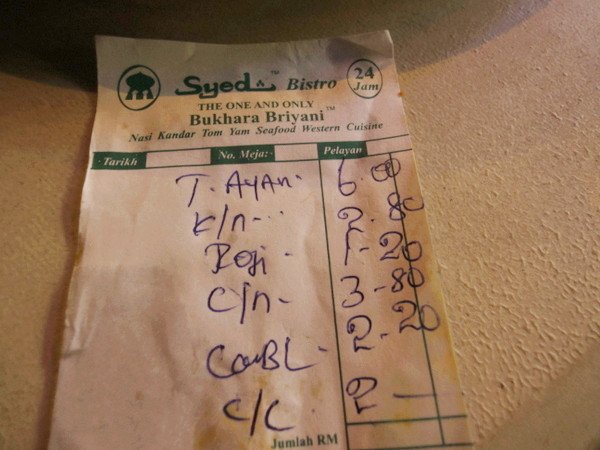 Syed TM Bistro 24 Jam
THE ONE AND ONLY
Bukhara Briyani TM
Nasi Kandar Tom Yam Seafood Western Cuisine
Tarikh No. Meja:- Pelayan
T. AyAn. 6.00
K/n- 2.80
Roji - 1-20
C/n- 3-80
CamBL- 2.20
C/C. 2 —
Jumlah RM